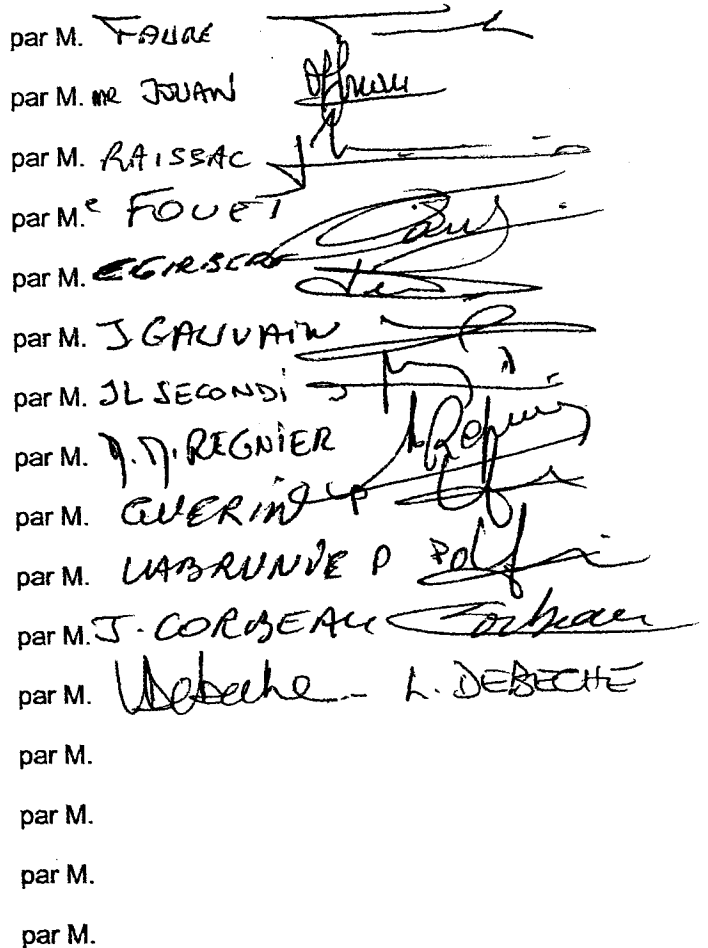 par M. FAURE
par M. MR JOUAN
par M. RAISSAC
par M.e FOUET
par M.
par M. J GAUVAIN
par M. JL SECONDI
par M. M. M. REGNIER
par M. GUERIN P
par M. LABRUNIE P
par M. J. CORBEAU Corbeau
par M. LDebeche - L. DEBECHE
par M.
par M.
par M.
par M.